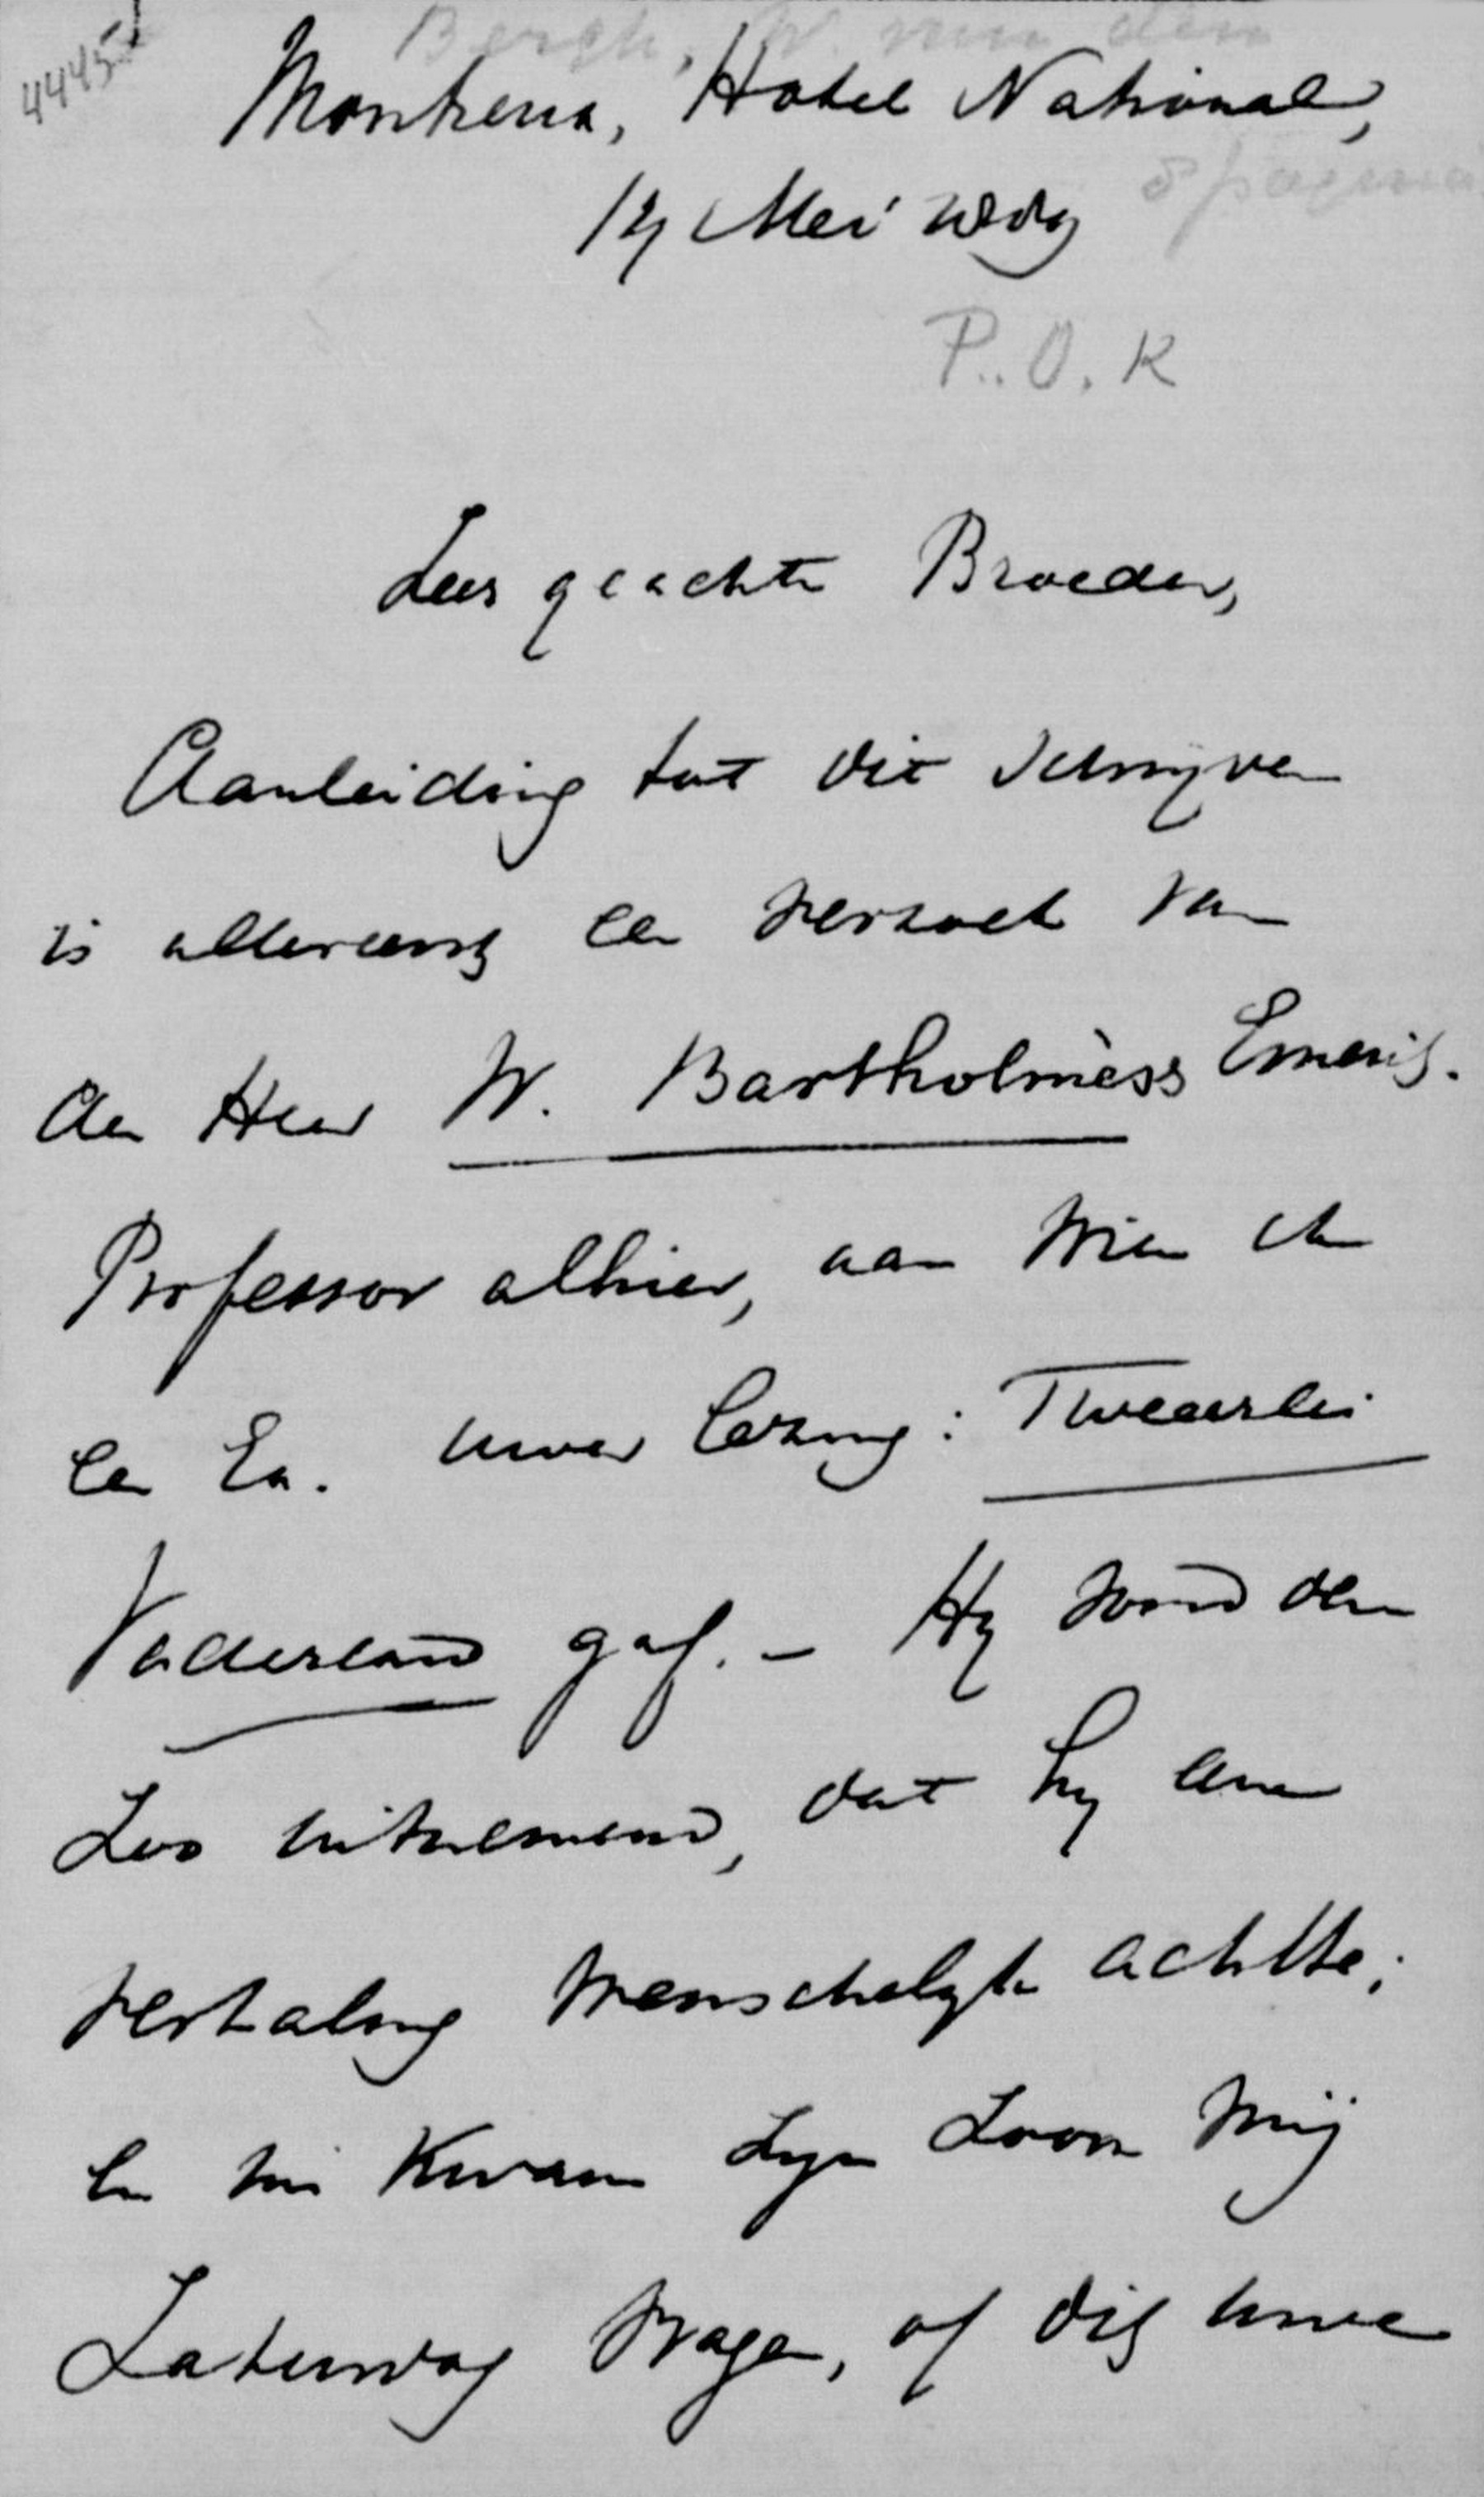 4445
Bergh, W. van den
Montreux, Hotel National,
Mei wdg
8 pagina
P.O.K
Zeer geachte Broeder,
Aanleiding tot dit schrijven
is allereerst een verzoek van
den Heer W. Bartholmèss Emerit.
Professor alhier, aan wien ik
een Ex. uwer lezing: Tweeërlei
Vaderland gaf. – Hij vond den
Zoo uitnemend, dat hij eene
vertaling wenschelijk achtte;
en nu kwam zijn Zoon mij
Zaterdag vragen, of dit uwe